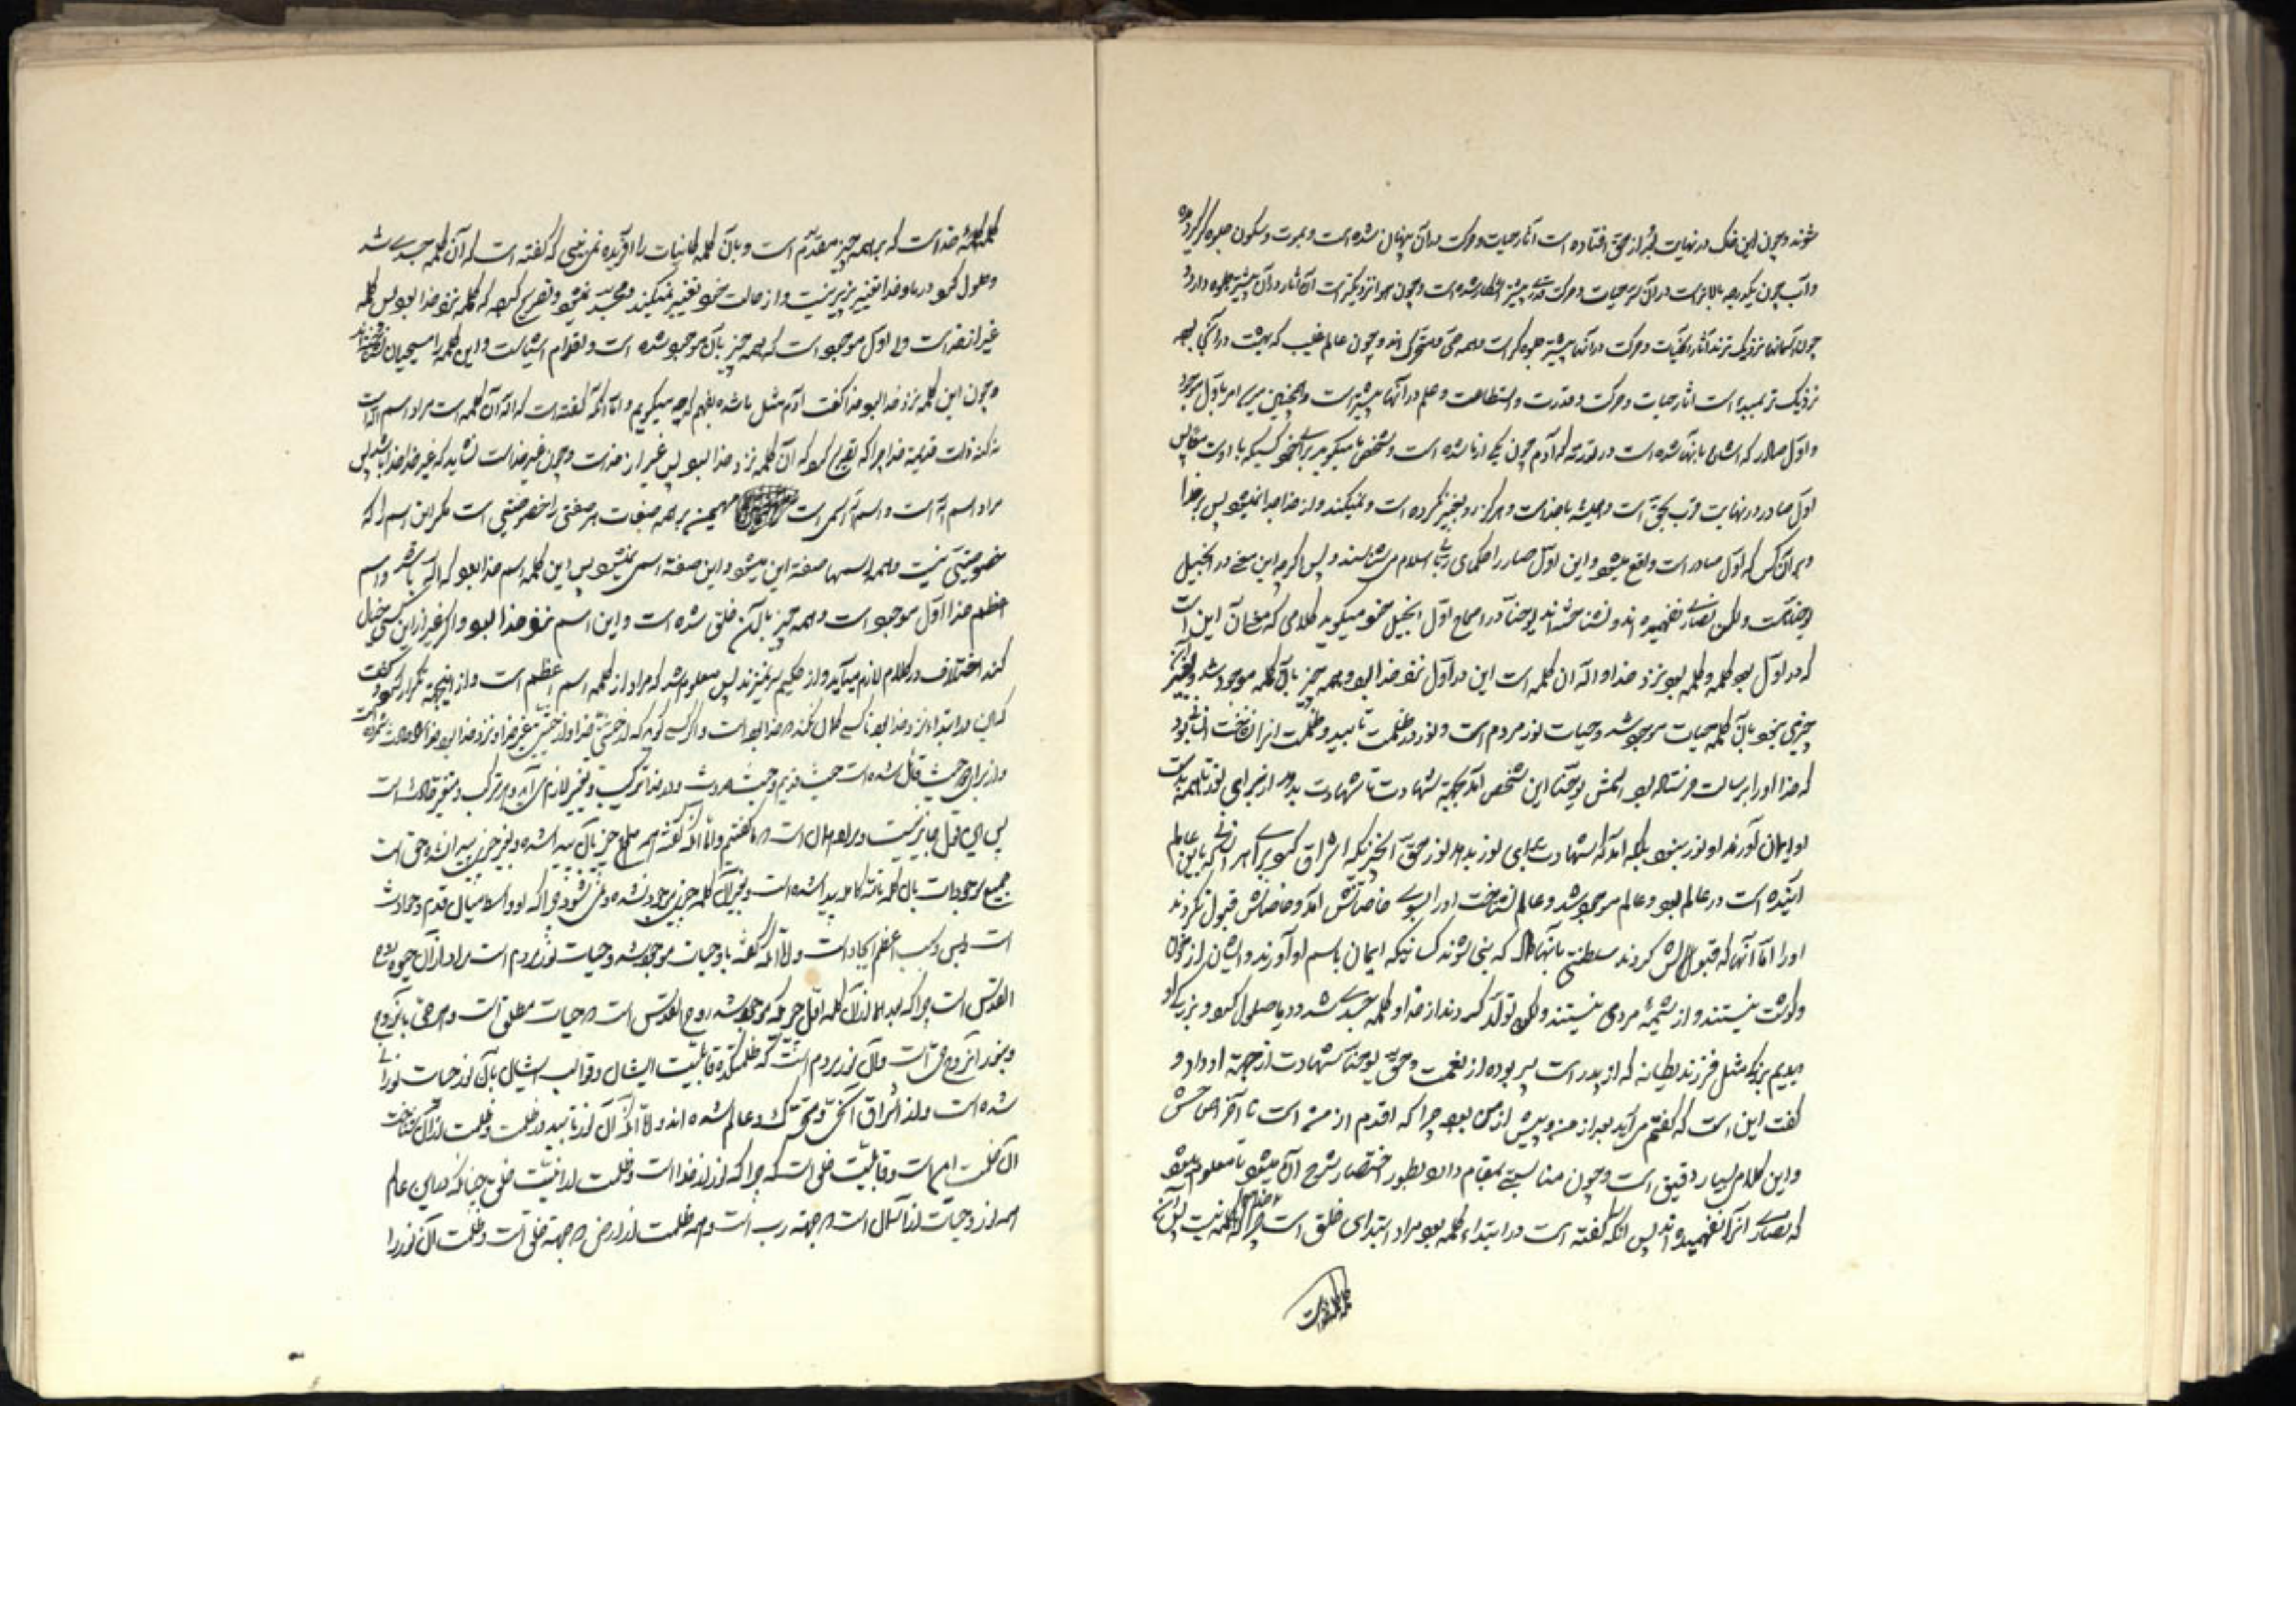 شوند و چون این خاک در نهایت بعد از حق افتاده است آثار حیات و حرکت در آن پنهان شده است و بموت و سکون جلوه گر گردیده
و آب چون یکدرجه بالاتر است در آن اثر حیات و حرکت قدری بیشتر آشکار شده است و چون هوا نزدیکتر است آن آثار در آن بیشتر جلوه دارد و
چون آسمانها نزدیک ترند آثار حیات و حرکت در آنها بیشتر جلوه گر است و همه حی و متحرک اند و چون عالم غیب که بهشت در آنجا
نزدیک تر بمبدء است آثار حیات و حرکت و قدرت و استطاعت و علم در آنها بیشتر است و همچنین
و اول صادر که اشاره بآنها شده است در تورته که آدم چون یکی از ما شده است و شخص ما میگوید برای خود و کسیکه با اوست
اول صادر در نهایت قرب بحق است و همیشه با خداست و هرگز رو بغیر نکرده است و نمیکند و از خدا جدا نمیشود پس بر خدا
و بر آن کس که اول صادر است واقع میشود و این اول صادر را حکمای ربانی اسلام می شناسند و بس اگر چه این سخن در انجیل
یوحناست ولکن نصاری نفهمیده اند و نشناخته اند یوحنا در اصحاح اول انجیل خود میگوید کلامی که معنای آن این است
که در اول بود کلمه و کلمه بود نزد خدا و اله آن کلمه است این در اول نزد خدا بود و همه چیز بآن کلمه موجود شد و بغیر از آن
چیزی نبود بآن کلمه حیات موجود شد و حیات نور مردم است و نور در ظلمت تابید و ظلمت آنرا نشناخت انسانی بود
که خدا او را برسالت فرستاده بود اسمش یوحنا این شخص آمد بجهة شهادت تا شهادت بدهد از برای نور تا همه بدست
او ایمان آورند او نور نبود بلکه آمد که شهادت برای نور بدهد نور حق آنچیزیکه اشراق کند برای هر انسانی که باین عالم
آینده است در عالم بود و عالم موجود شد و عالم نشناخت او را بسوی خاصانش آمد و خاصانش قبول نکردند
او را اما آنها که قبولش کردند سلطنتی بآنها داد که بنی شوند کسانیکه ایمان باسم او آورند و ایشان از خون
و گوشت نیستند و از مشیة مردی نیستند ولکن تولد کردند از خدا و کلمه جسدی شد و در ما حلول کرد و بزرگی او
دیدیم بزرگی مثل فرزند یگانه که از پدر است پر بوده از نعمت و حق یوحنا شهادت از جهة او داد و
گفت این است که گفتم می آید بعد از من و پیش از من بود چرا که اقدم از من است تا آخر اصحاحش
و این کلام بسیار دقیق است و چون مناسبتی بمقام دارد بطور اختصار شرح آن میشود تا معلوم شود
که نصاری آنرا نفهمیده اند پس آنکه گفته است در ابتداء کلمه بود مراد ابتدای خلق است چرا که
کلمه کلمه خداست که بر همه چیز مقدم است و بآن کلمه کاینات را آفریده نمی بینی که گفته است که آن کلمه جسدی شد
و حلول کرد در ما و خدا تغییر پذیر نیست و از حالت خود تغییر نمیکند و مجسد نمیشود و تصریح کرده که کلمه نزد خدا بود پس کلمه
غیر از خداست ولی اول موجود است که همه چیز بآن موجود شده است و اقدم اشیاست و این کلمه را مسیحیان
و چون این کلمه نزد خدا بود خدا گفت آدم مثل ما شده بفهم که چه میگویم و اما آنکه گفته است که اله آن کلمه است مراد اسم اله است
نه کنه ذات قدیمة خدا چرا که تصریح کرد که آن کلمه نزد خدا بود پس غیر از خداست و چون غیر خداست نشاید که غیر خدا خدا باشد پس
مراد اسم اله است و اسم اله اسمی است مهیمن بر همه صفات هر صفتی را خصوصیتی است مگر این اسم را که
خصوصیتی نیست و همه اسمها صفة این میشود و این صفة اسمی نمیشود پس این کلمه اسم خدا بود که اله باشد و اسم
اعظم خدا اول موجود است و همه چیز بآن خلق شده است و این اسم نزد خدا بود و اگر غیر از این کسی خیال
کند اختلاف در کلام لازم میآید و از حکیم سر نمیزند پس معلوم شد که مراد از کلمه اسم اعظم است و از اینجهة تکرار کرد و گفت
که این در ابتدا نزد خدا بود تا کسی گمان نکند که خدا بود است و اگر کسی گوید که از حیثیتی خدا و از حیثیتی غیر خدا و نزد خدا بود
و از برای او دو حیث قائل شده است حیث قدیم و حیث حدوث و در خدا ترکیب و تغییر لازم می آید و هر مرکب و متغیر حادث است
پس این قول جایز نیست و مراد همان است که ما گفتیم و اما آنکه گفته است همه چیز بآن پیدا شده و بغیر چیزی پیدا نشده حق است
جمیع موجودات بآن کلمه تامه کامله پیدا شده است و بغیر آن کلمه چیزی موجود نشده و نمی شود چرا که او واسطه میان قدم و حوادث
است و بس و سبب اعظم ایجاد است و اما آنکه گفته باو حیات موجود شد و حیات نور مردم است مراد از آن حیوة روح
القدس است چرا که بعد از آن کلمه اول چیزیکه موجود شد روح القدس است که حیات مطلق است و هر حی بآن روح
و بنور آن روح حی است و آن نور مردم است که ظلمتکده قابلیت ایشان و قوالب ایشان بآن نور حیات نورانی
شده است و از اشراق آن حی و متحرک و عالم شده اند و اما آنکه آن نور تابید در ظلمت و ظلمت نور آنرا نشناخت
آن ظلمت امکان است و قابلیت خلق است چرا که نور از خداست و ظلمت از انیت خلق چنانکه در این عالم
همه نور و حیات از آسمان است که جهة رب است و همه ظلمت از ارض که جهة خلق است و ظلمت آن نور را